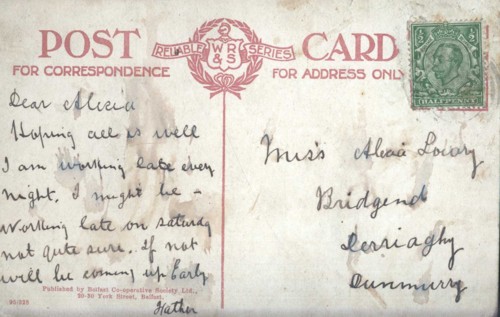 POST CARD
RELIABLE WR&S SERIES
FOR CORRESPONDENCE
FOR ADDRESS ONLY
HALFPENNY
Dear Alicia
Hoping all is well
I am working late every
night. I might be -
working late on saturday
not qute sure. If not
will be coming up Early
Father
Published by Belfast Co-operative Society Ltd.,
20-80 York Street, Belfast.
Miss Alicia Lowry
Bridgend
Derriaghy
Dunmurry